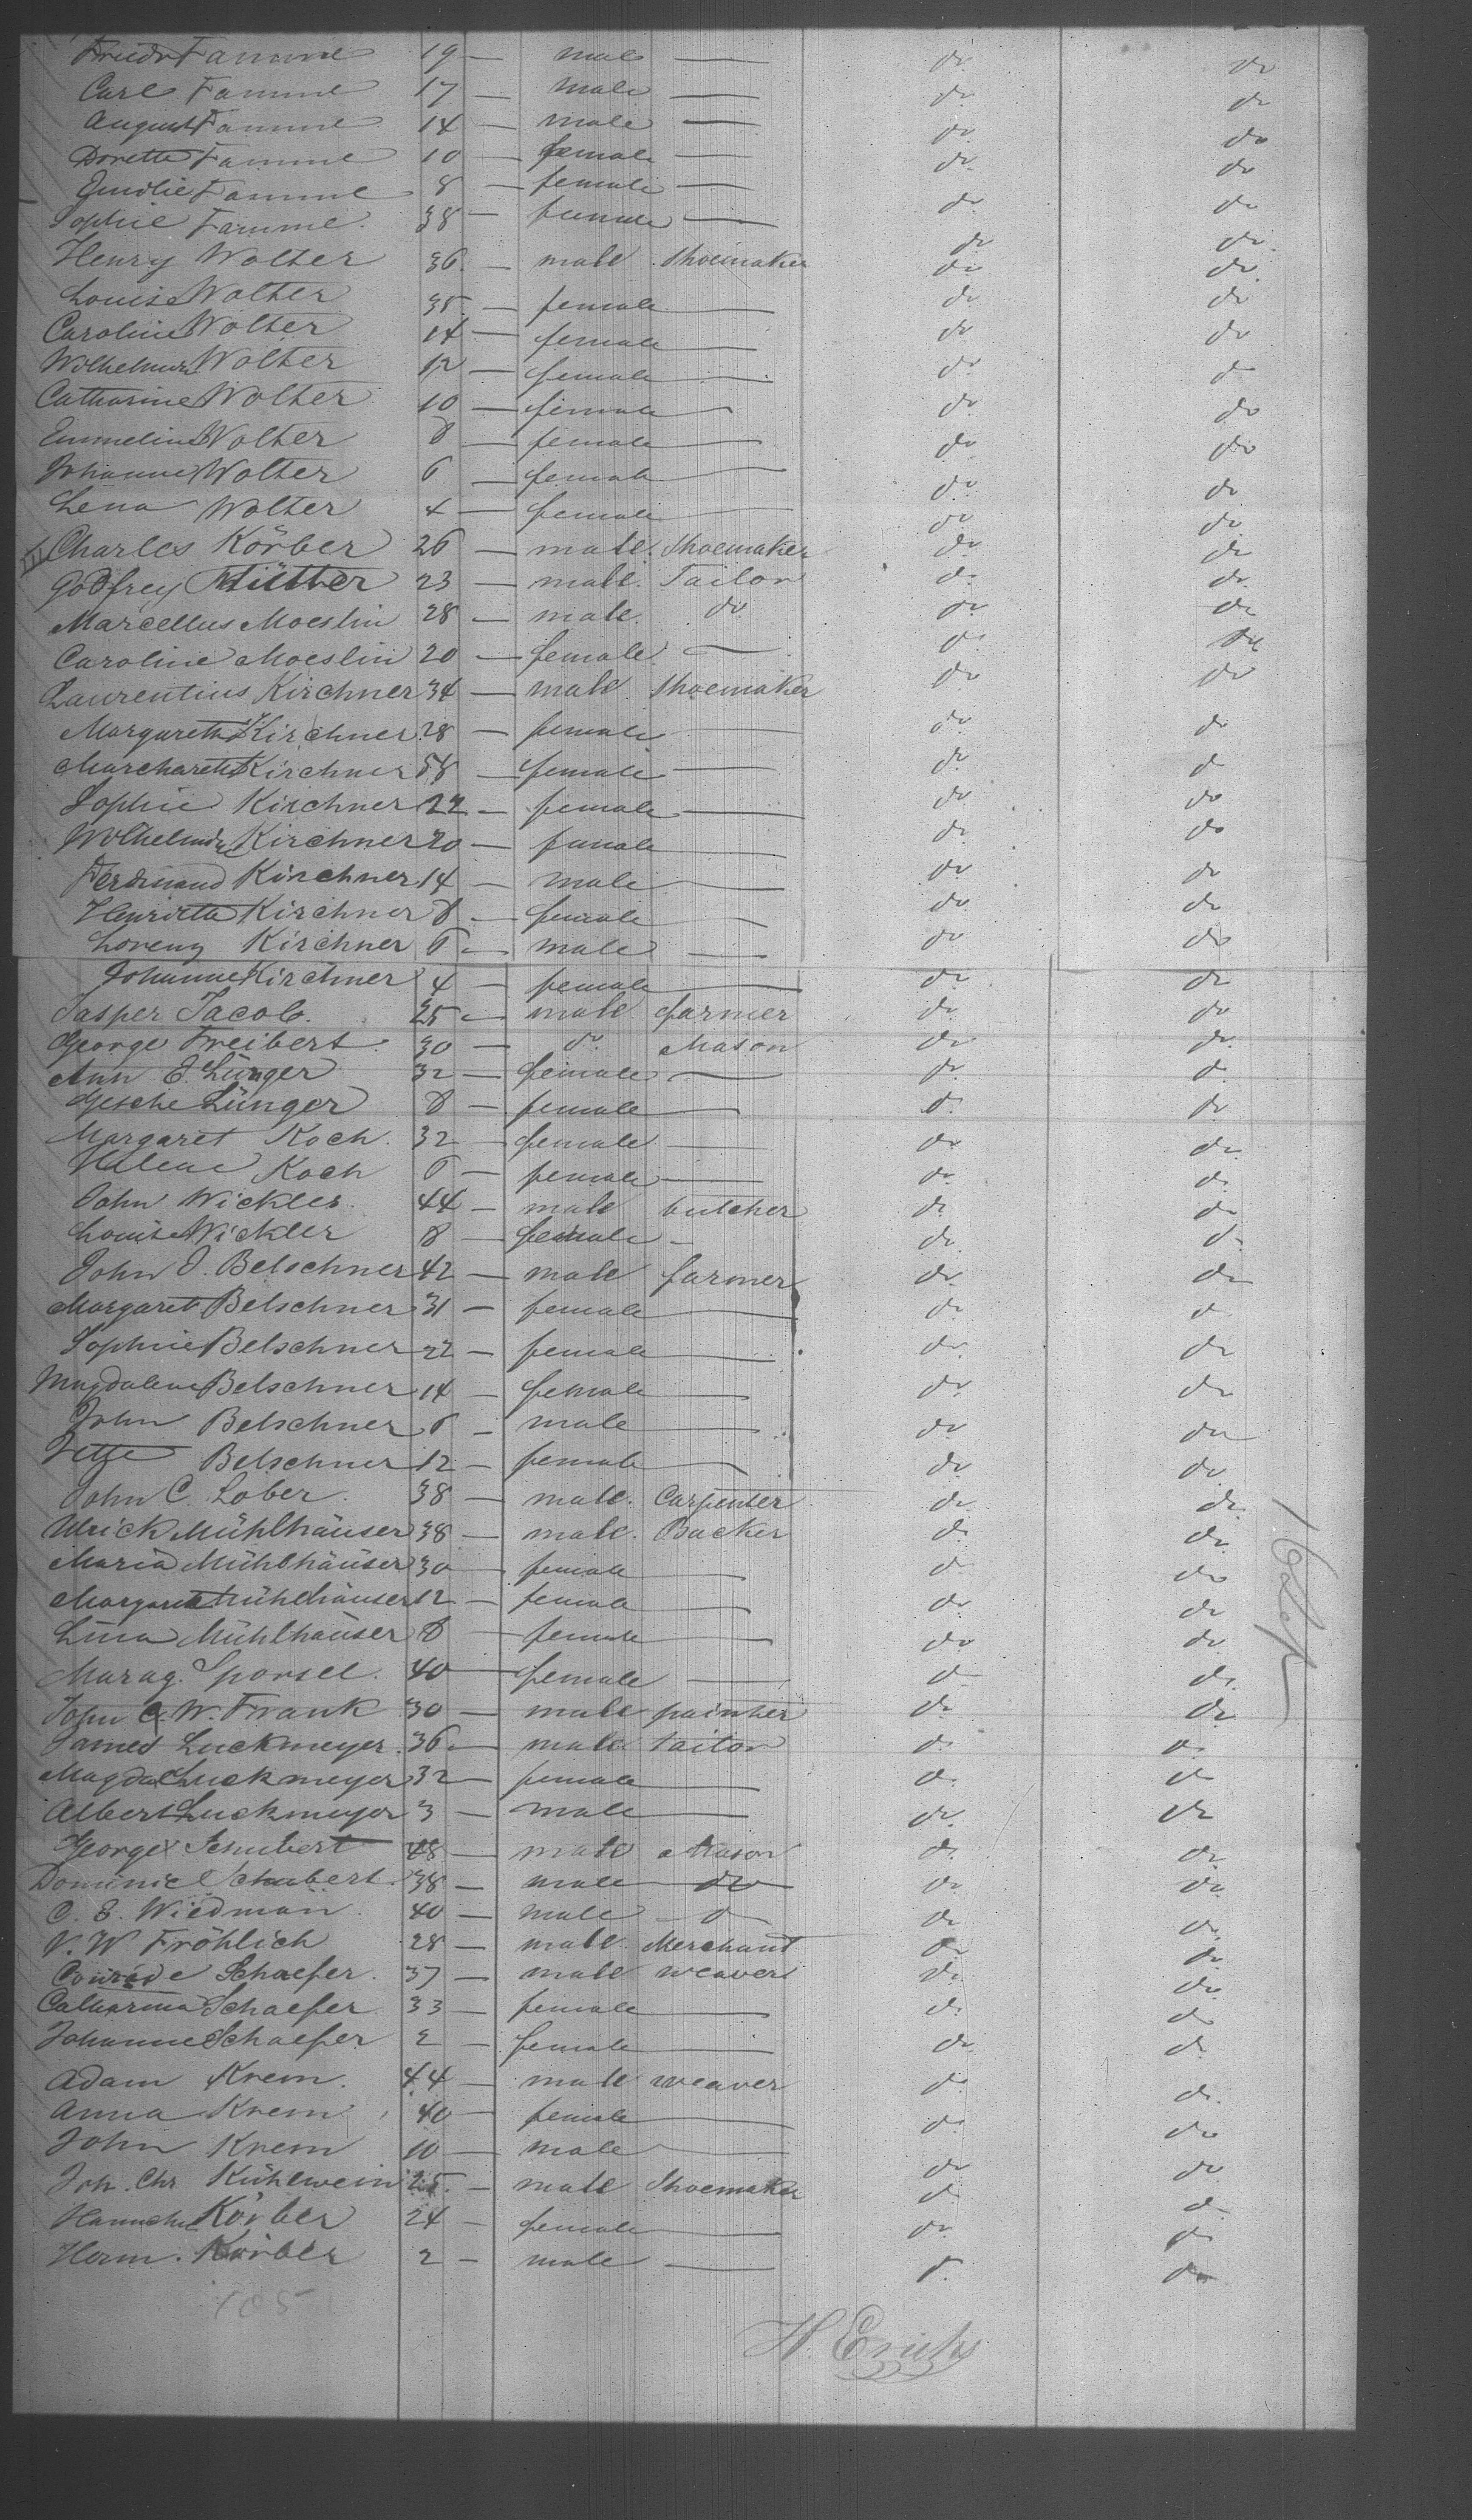 Friedr Famme 19 — male — do do
Carl Famme 17 — male — do do
August Famme 14 — male — do do
Dorette Famme 10 — female — do do
Emilie Famme 8 — female — do do
Sophie Famme 38 — female — do do
Henry Wolter 36 — male Shoemaker do do
Louise Wolter 35 — female — do do
Caroline Wolter 14 — female — do do
Wilhelmine Wolter 12 — female — do do
Catharine Wolter 10 — female — do do
Emmeline Wolter 8 — female — do do
Johanne Wolter 6 — female — do do
Lena Wolter 4 — female — do do
Charles Körber 26 — male Shoemaker do do
Godfrey 23 — male Tailor do do
Marcellus Moeslin 28 — male do do do
Caroline Moeslin 20 — female — do do
Laurentius Kirchner 34 — male Shoemaker do do
Margareth Kirchner 28 — female — do do
Marchareth Kirchner 58 — female — do do
Sophie Kirchner 22 — female — do do
Wilhelmine Kirchner 20 — female — do do
Ferdinand Kirchner 14 — male — do do
Henrietta Kirchner 8 — female — do do
Lorenz Kirchner 6 — male — do do
Johanne Kirchner 4 — female — do do
Jasper Jacob 25 — male farmer do do
George Freibert 30 — do Mason do do
Ann E. Lünger 32 — female — do do
Gesche Lünger 8 — female — do do
Margaret Koch 32 — female — do do
Helene Koch 6 — female — do do
John Wickler 44 — male butcher do do
Louise Wickler 8 — female — do do
John J. Belschner 42 — male farmer do do
Margaret Belschner 31 — female — do do
Sophie Belschner 22 — female — do do
Magdalene Belschner 14 — female — do do
John Belschner 6 — male — do do
Jette Belschner 12 — female — do do
John C. Lober 38 — male Carpenter do do
Ulrick Mühlhäuser 38 — male Backer do do
Maria Mühlhäuser 30 — female — do do
Margaret Mühlhäuser 12 — female — do do
Lina Mühlhäuser 8 — female — do do
Marag. Sporsel 40 — female — do do
John C. W. Frank 30 — male painter do do
James Luckmeyer 36 — male tailor do do
Magda Luckmeyer 32 — female — do do
Albert Luckmeyer 3 — male — do do
George Schubert 48 — male Mason do do
Dominic Schubert 38 — male do do do
C. E. Wiedman 40 — male do do do
V. W Fröhlich 28 — male Merchant do do
Conrade Schaefer 37 — male weaver do do
Catharina Schaefer 33 — female — do do
Johanne Schaefer 2 — female — do do
Adam Krem 44 — male weaver do do
Anna Krem 40 — female — do do
John Krem 10 — male — do do
Joh. Chr Kühlwein 25 — male Shoemaker do do
Hannchen Körber 24 — female — do do
Herm. Körber 2 — male — do do
105